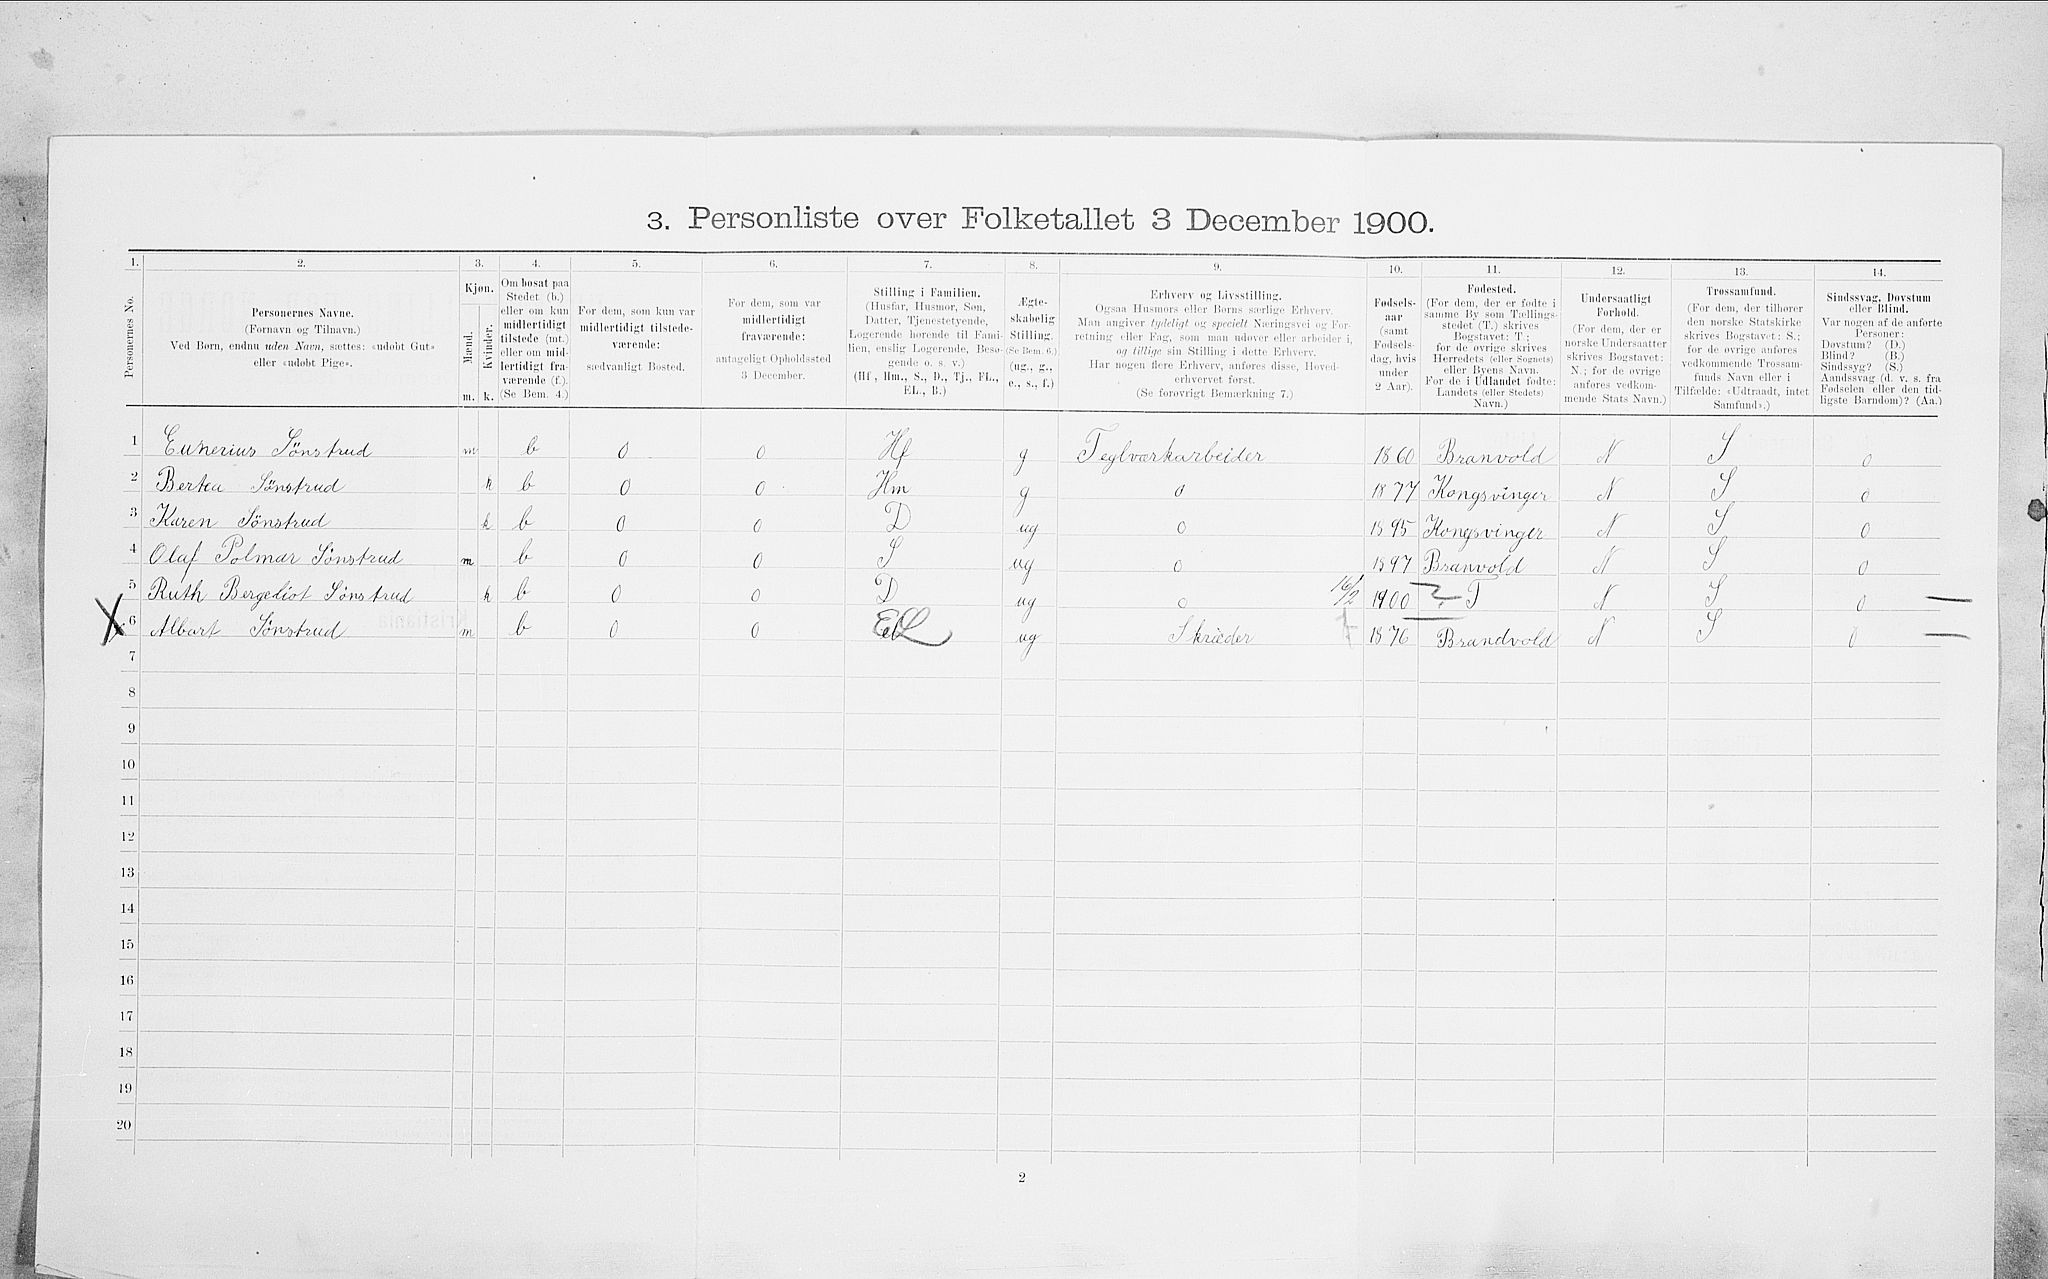 3. Personliste over Folketallet 3 December 1900.
1. 2. 3. 4. 5. 6. 7. 8. 9. 10. 11. 12. 13. 14.
Personernes No.
Personernes Navne.
(Fornavn og Tilnavn.)
Ved Børn, endnu uden Navn, sættes: «udøbt Gut»
eller «udøbt Pige».
Kjøn.
Mænd.
Kvinder.
m. k.
Om bosat paa
Stedet (b.)
eller om kun
midlertidigt
tilstede (mt.)
eller om mid-
lertidigt fra-
værende (f.).
(Se Bem. 4.)
For dem, som kun var
midlertidigt tilstede-
værende:
sædvanligt Bosted.
For dem, som var
midlertidigt
fraværende:
antageligt Opholdssted
3 December.
Stilling i Familien.
(Husfar, Husmor, Søn,
Datter, Tjenestetyende,
Logerende hørende til Fami-
lien, enslig Logerende, Besø-
gende o. s. v.)
(Hf., Hm., S., D., Tj., FL.,
EL., B.)
Ægte-
skabelig
Stilling.
(Se Bem. 6.)
(ug., g.,
e., s., f.)
Erhverv og Livsstilling.
Ogsaa Husmors eller Børns særlige Erhverv.
Man angiver tydeligt og specielt Næringsvei og For-
retning eller Fag, som man udøver eller arbeider i,
og tillige sin Stilling i dette Erhverv.
Har nogen flere Erhverv, anføres disse, Hoved-
erhvervet først.
(Se forøvrigt Bemærkning 7.)
Fødsels-
aar
(samt
Fødsels-
dag, hvis
under
2 Aar).
Fødested.
(For dem, der er fødte i
samme By som Tællings-
stedet (T.) skrives
Bogstavet: T.;
for de øvrige skrives
Herredets (eller Sognets)
eller Byens Navn.
For de i Udlandet fødte:
Landets (eller Stedets)
Navn.)
Undersaatligt
Forhold.
(For dem, der er
norske Undersaatter
skrives Bogstavet:
N.; for de øvrige
anføres vedkom-
mende Stats Navn.)
Trossamfund.
(For dem, der tilhører
den norske Statskirke
skrives Bogstavet: S.;
for de øvrige anføres
vedkommende Trossam-
funds Navn eller i
Tilfælde: «Udtraadt, intet
Samfund».)
Sindssvag, Døvstum
eller Blind.
Var nogen af de anførte
Personer:
Døvstum? (D.)
Blind? (B.)
Sindssyg? (S.)
Aandssvag (d. v. s. fra
Fødselen eller den tid-
ligste Barndom)? (Aa.)
1 Sønstrud m b 0 0 Hf g Teglværkarbeider 1860 Branvold N S 0
2 Bertea Sønstrud k b 0 0 Hm g 0 1877 Kongsvinger N S 0
3 Karen Sønstrud k b 0 0 D ug 0 1895 Kongsvinger N S 0
4 Olaf Polmar Sønstrud m b 0 0 S ug 0 1897 Branvold N S 0
5 Ruth Bergediot Sønstrud k b 0 0 D ug 0 16/2 1900 ? T N S 0
X 6 Albart Sønstrud m b 0 0 EL ug Skræder 1876 Brandvold N S 0
7
8
9
10
11
12
13
14
15
16
17
18
19
20
2